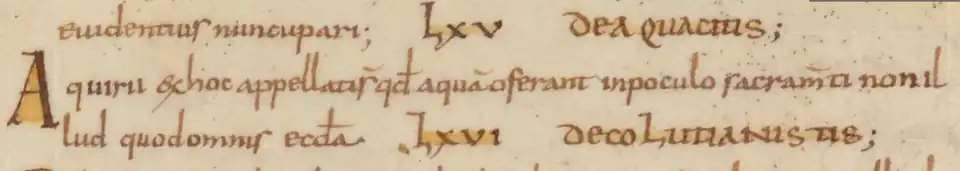 euidentius nuncupari; Lxv DE AQUARIIS;
Aquirii & hoc appellatis̄ qđ aquā oferant in poculo sacram̄ti non il
lud quod omnis eccła Lxvi DE COLUTIANISTIS;